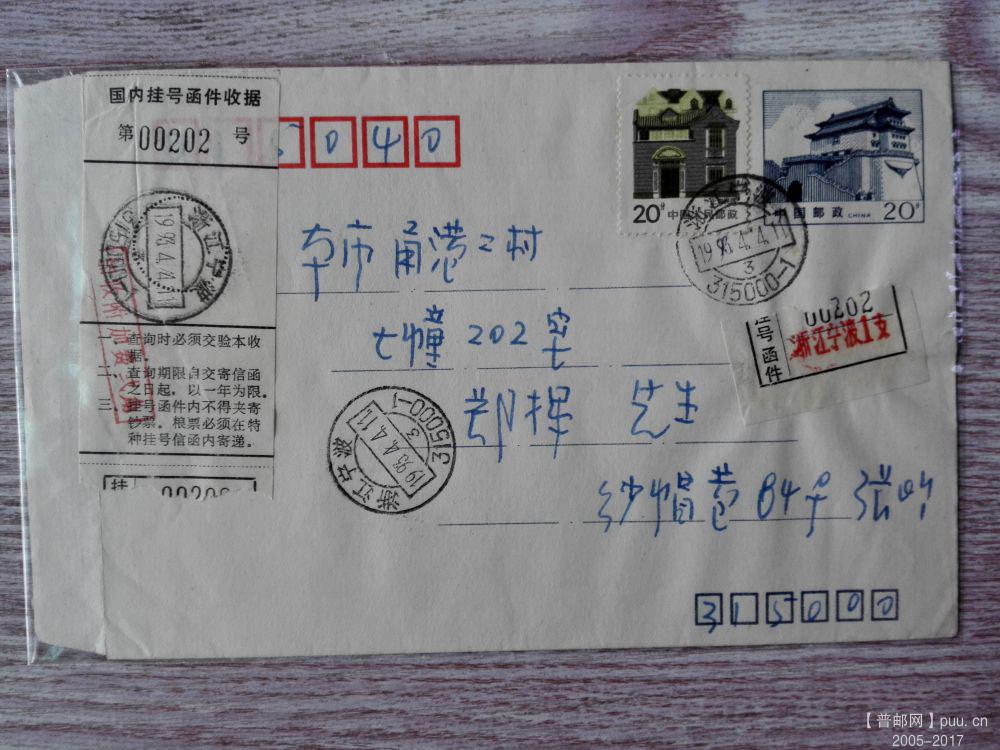 国内挂号函件收据
第00202号
浙江宁波
1993.4.4.11
315000-1
一、查询时必须交验本收据。
二、查询期限自交寄信函之日起，以一年为限。
三、挂号函件内不得夹寄钞票。粮票必须在特种挂号信函内寄递。
挂
00202
5040
20分
中国人民邮政
中国邮政 CHINA 20分
浙江宁波
1993.4.4.11
3
315000-1
本市甬港二村
七幢202室
郑挥 先生
纱帽巷84号 张
浙江宁波
1993.4.4.11
3
315000-1
挂号函件
00202
浙江宁波1支
315000
【普邮网】puu.cn
2005-2017